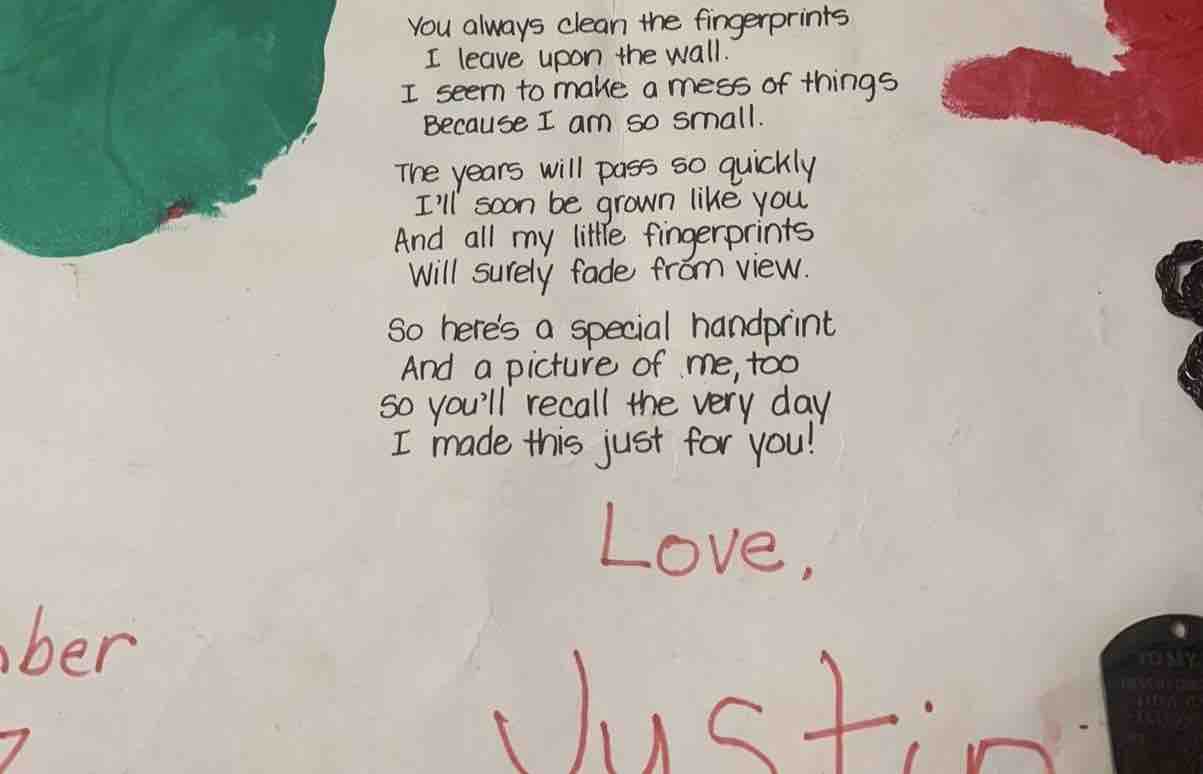 You always clean the fingerprints
I leave upon the wall.
I seem to make a mess of things
Because I am so small.
The years will pass so quickly
I'll soon be grown like you
And all my little fingerprints
Will surely fade from view.
So here's a special handprint
And a picture of me, too
So you'll recall the very day
I made this just for you!
Love,
ber
Justin
TO MY